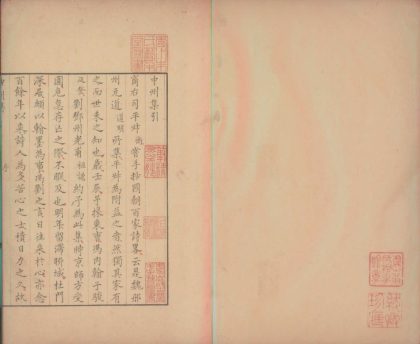 中州集引
商右司平叔衡嘗手抄國朝百家詩畧云是魏邢
州元道道明所集平叔為附益之者然獨其家有
之而世未之知也歲壬辰予掾東曹馮內翰子駿
延登劉鄧州光甫祖謙約予為此集時京師方受
圍危急存亡之際不暇及也明年留滯聊城杜門
深居頗以翰墨為事馮劉之言日往來於心亦念
百餘年以來詩人為多苦心之士積日力之久故